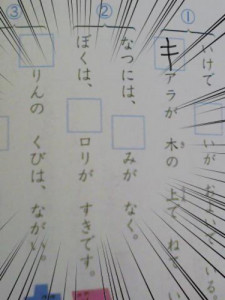 ①
いけで □いが およいで いる。
キアラが 木の 上で ねて い
②
なつには、□みが なく。
ぼくは、□ロリが すきです。
③
□りんの くびは、ながい。